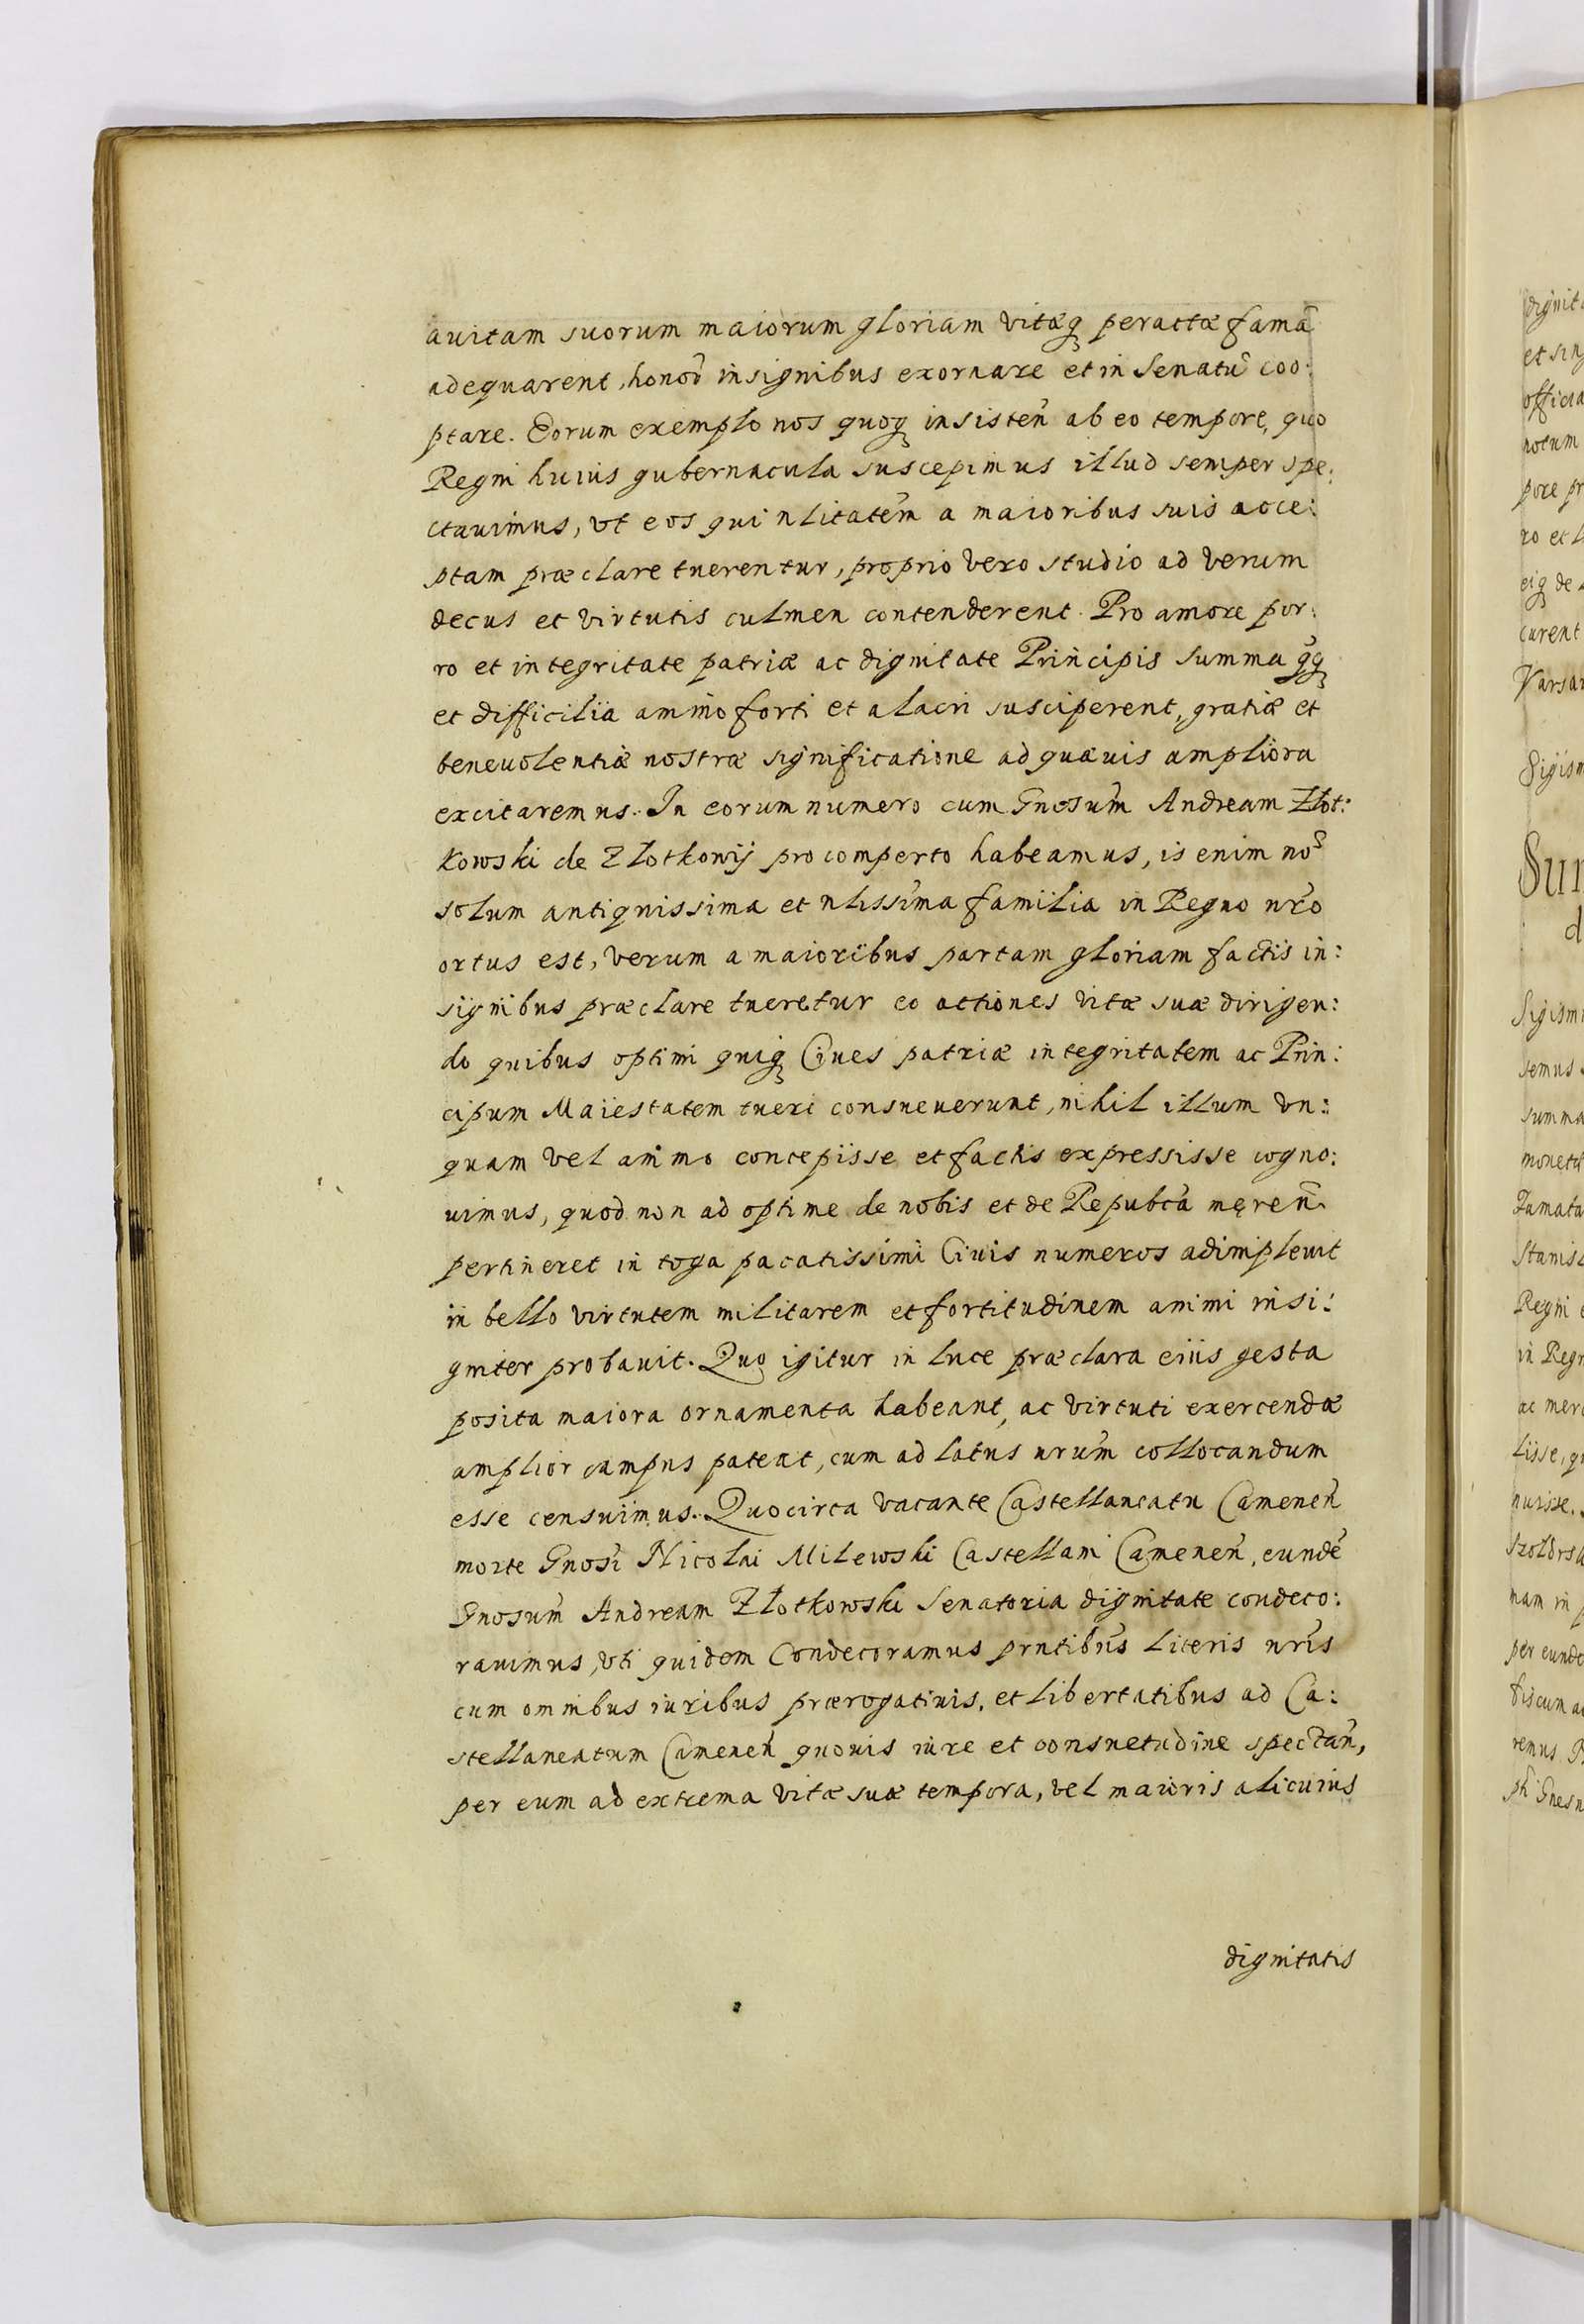 auitam suorum maiorum gloriam vitæq peractæ famã
adequarent, honoꝝ insignibus exornare et in Senatũ coo:
ptare. Eorum exemplo nos quoq insisteñ ab eo tempore, quo
Regni huius gubernacula suscepimus illud semper spe:
ctauimus, vt eos qui nlitatem̃ a maioribus suis acce:
ptam præclare tuerentur, proprio vero studio ad verum
decus et virtutis culmen contenderent. Pro amore por:
ro et integritate patriæ ac dignitate Principis summa q̃q
et difficilia animo forti et alacri susciperent, gratiæ et
beneuolentiæ nostræ significatione ad quæuis ampliora
excitaremus. In eorum numero cum Gnosum̃ Andream Złot:
kowski de Złotkowij pro comperto habeamus, is enim nõ
solum antiquissima et nlissima familia in Regno nr̃o
ortus est, verum a maioribus partam gloriam factis in:
signibus præclare tueretur eo actiones vitæ suæ dirigen:
do quibus optimi quiq Ciues patriæ integritatem ac Prin:
cipum Maiestatem tueri consueuerunt, nihil illum vn:
quam vel animo concepisse et factis expressisse cogno:
uimus, quod non ad optime de nobis et de Repubca męreñ
pertineret in toga pacatissimi Ciuis numeros adimpleuit
in bello virtutem militarem et fortitudinem animi insi:
gniter probauit. Quo igitur in luce præclara eius gesta
posita maiora ornamenta habeant, ac virtuti exercendæ
amplior campus pateat, eum ad latus nrum̃ collocandum
esse censuimus. Quocirca vacante Castellaneatu Cameneñ
morte Gnosi Nicolai Milewski Castellani Cameneñ, eundẽ
Gnosum̃ Andream Złotkowski Senatoria dignitate condeco:
rauimus, vti quidem Condecoramus prntibus̃ literis nris̃
cum omnibus iuribus prærogatiuis, et libertatibus ad Ca:
stellaneatum Cameneñ quouis iure et consuetudine spectañ,
per eum ad extrema vitæ suæ tempora, vel maioris alicuius
dignitatis